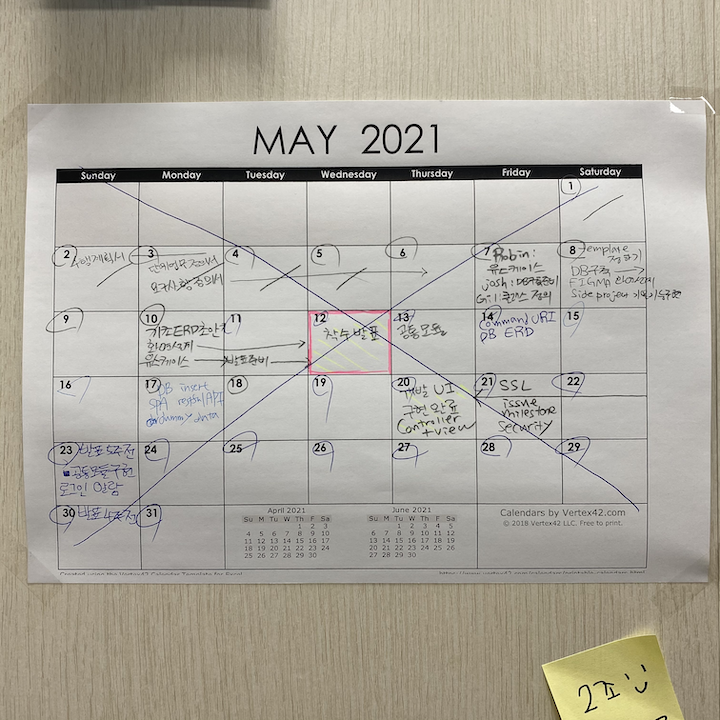 MAY 2021
Sunday Monday Tuesday Wednesday Thursday Friday Saturday
1
2 수행계획서
3 단위업무정의서
요구사항 정의서
4
5
6
7 Robin:
유스케이스
josh: DB구축준비
Gill: 클래스 정의
8 template
정하기
DB구축
FIGMA 화면설계
Side project
9
10 기초ERD초안
화면설계
유스케이스
11 발표준비
12 착수발표
13 공통모듈
14 Command URI
DB ERD
15
16
17 DB insert
SPA restful API
dummy data
18
19
20 개발 UI
구현 완료
Controller
+ view
21 SSL
issue
milestone
security
22
23 발표 5주전
공통모듈구현
로그인 알람
24
25
26
27
28
29
30 발표 4주전
31
April 2021
Su M Tu W Th F Sa
1 2 3
4 5 6 7 8 9 10
11 12 13 14 15 16 17
18 19 20 21 22 23 24
25 26 27 28 29 30
June 2021
Su M Tu W Th F Sa
1 2 3 4 5
6 7 8 9 10 11 12
13 14 15 16 17 18 19
20 21 22 23 24 25 26
27 28 29 30
Calendars by Vertex42.com
© 2018 Vertex42 LLC. Free to print.
Created using the Vertex42 Calendar Template for Excel
2조